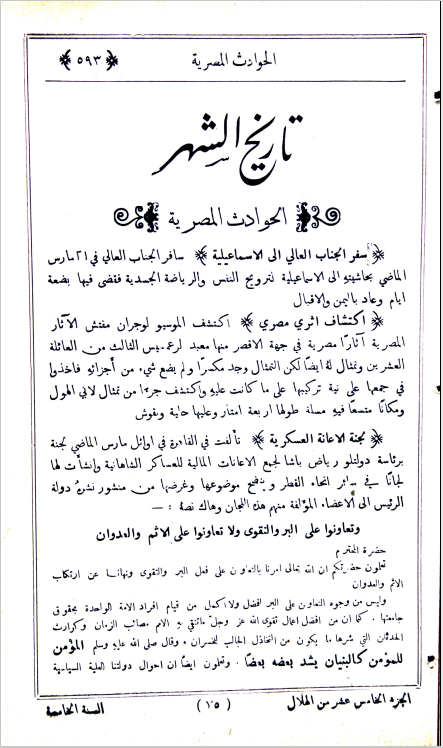 الحوادث المصرية
﴿ ٥٩٣ ﴾
تاريخ الشهر
الحوادث المصرية
﴿ سفر الجناب العالي الى الاسماعيلية ﴾ سافر الجناب العالي في ٢١ مارس
الماضي بحاشيته الى الاسماعيلية لترويح النفس والرياضة الجسدية فقضى فيها بضعة
ايام وعاد باليمن والاقبال
﴿ اكتشاف اثري مصري ﴾ اكتشف الموسيو لوجران مفتش الآثار
المصرية آثارًا مصرية في جهة الاقصر منها معبد لرعمسيس الثالث من العائلة
العشرين وتمثال له ايضًا لكن التمثال وجد مكسرًا ولم يضع شيء من أجزائه فاخذوا
في جمعها على نية تركيبها على ما كانت عليه واكتشف جزءا من تمثال لابي الهول
ومكانًا متسعًا فيه مسلة طولها اربعة امتار وعليها حلية ونقوش
﴿ لجنة الاعانة العسكرية ﴾ تألفت في القاهرة في اوائل مارس الماضي لجنة
برئاسة دولتلو رياض باشا لجمع الاعانات المالية للعساكر الشاهانية وانشأت لها
لجانًا في سائر انحاء القطر ويتضح موضوعها وغرضها من منشور نشره دولة
الرئيس الى الاعضاء المؤلفة منهم هذه اللجان وهاك نصه : —
وتعاونوا على البر والتقوى ولا تعاونوا على الاثم والعدوان
حضرة المحترم
تعلمون حضرتكم ان الله تعالى امرنا بالتعاون على فعل البر والتقوى ونهانا عن ارتكاب
الاثم والعدوان
وليس من وجوه التعاون على البر افضل ولا اكمل من قيام افراد الامة الواحدة بحقوق
جامعتها . كما ان من افضل اعمال تقوى الله عز وجل ماتتقي به الامم مصائب الزمان وكوارث
الحدثان التي شرها ما يكون من التخاذل الجالب للخسران . وقال صلى الله عليه وسلم المؤمن
للمؤمن كالبنيان يشد بعضه بعضا . وتعلمون ايضًا ان احوال دولتنا العلية السياسية
الجزء الخامس عشر من الهلال
( ١٥ )
السنة الخامسة